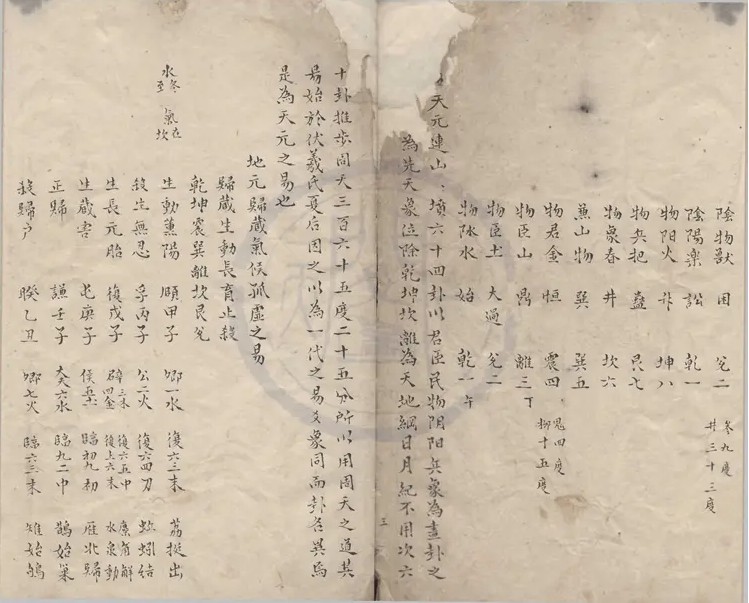 參九度
井三十三度
陰物獸 困 兌二
陰陽樂 訟 乾一
物陽火 升 坤八
物兵把 蠱 艮七
物象春 井 坎六
兼山物 巽 巽五
鬼四度
柳十五度
物君金 恒 震四
物臣山 鼎 離三丁
物臣土 大過 兌二
物脉水 始 乾一午
天元連山 墳六十四卦以君臣民物陰陽兵象為畫卦之
為先天象位除乾坤坎離為天地綱日月紀不用次六
三
十卦推步周天三百六十五度二十五分所以用周天之道其
易始於伏羲氏夏后因之以為一代之易爻象同而卦各異焉
是為天元之易也
地元歸藏氣候孤虛之易
歸藏生動長育止殺
乾坤震巽離坎艮兌
水冬至 氣在坎
生動熏陽 頤甲子 卿一水 復六三末 荔挺出
殺生無忍 孚丙子 公二火 復六四初 蚯蚓結
生長元胎 復戊子 辟三木四金 復六五中復上六末 麋角解水泉動
生藏害 屯庚子 侯五土 臨初九初 雁北歸
正歸 謙壬子 大夫六水 臨九二中 鵲始巢
殺歸戶 睽乙丑 卿七火 臨六三末 雉始鴝